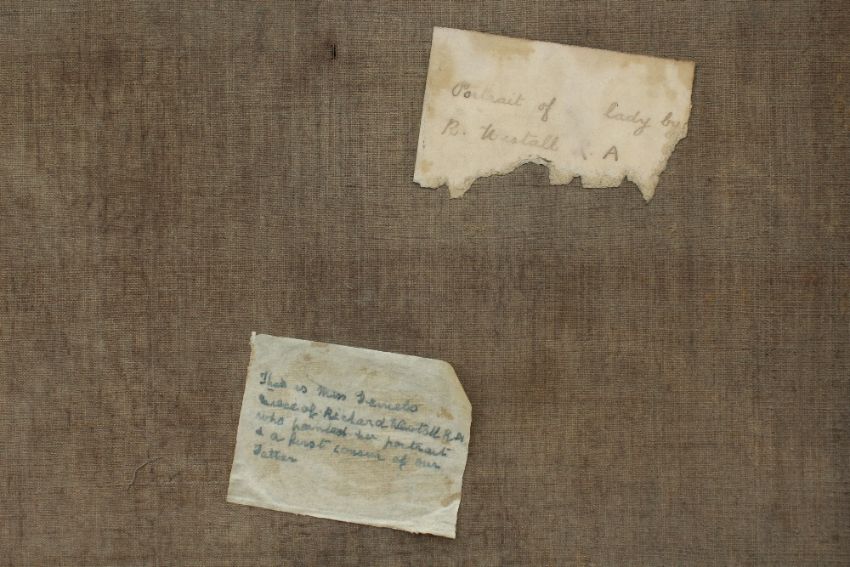 Portrait of lady by
R. Westall R. A
That is Miss Daniels
niece of Richard Westall R.A
who painted her portrait
& a first cousin of our
Father